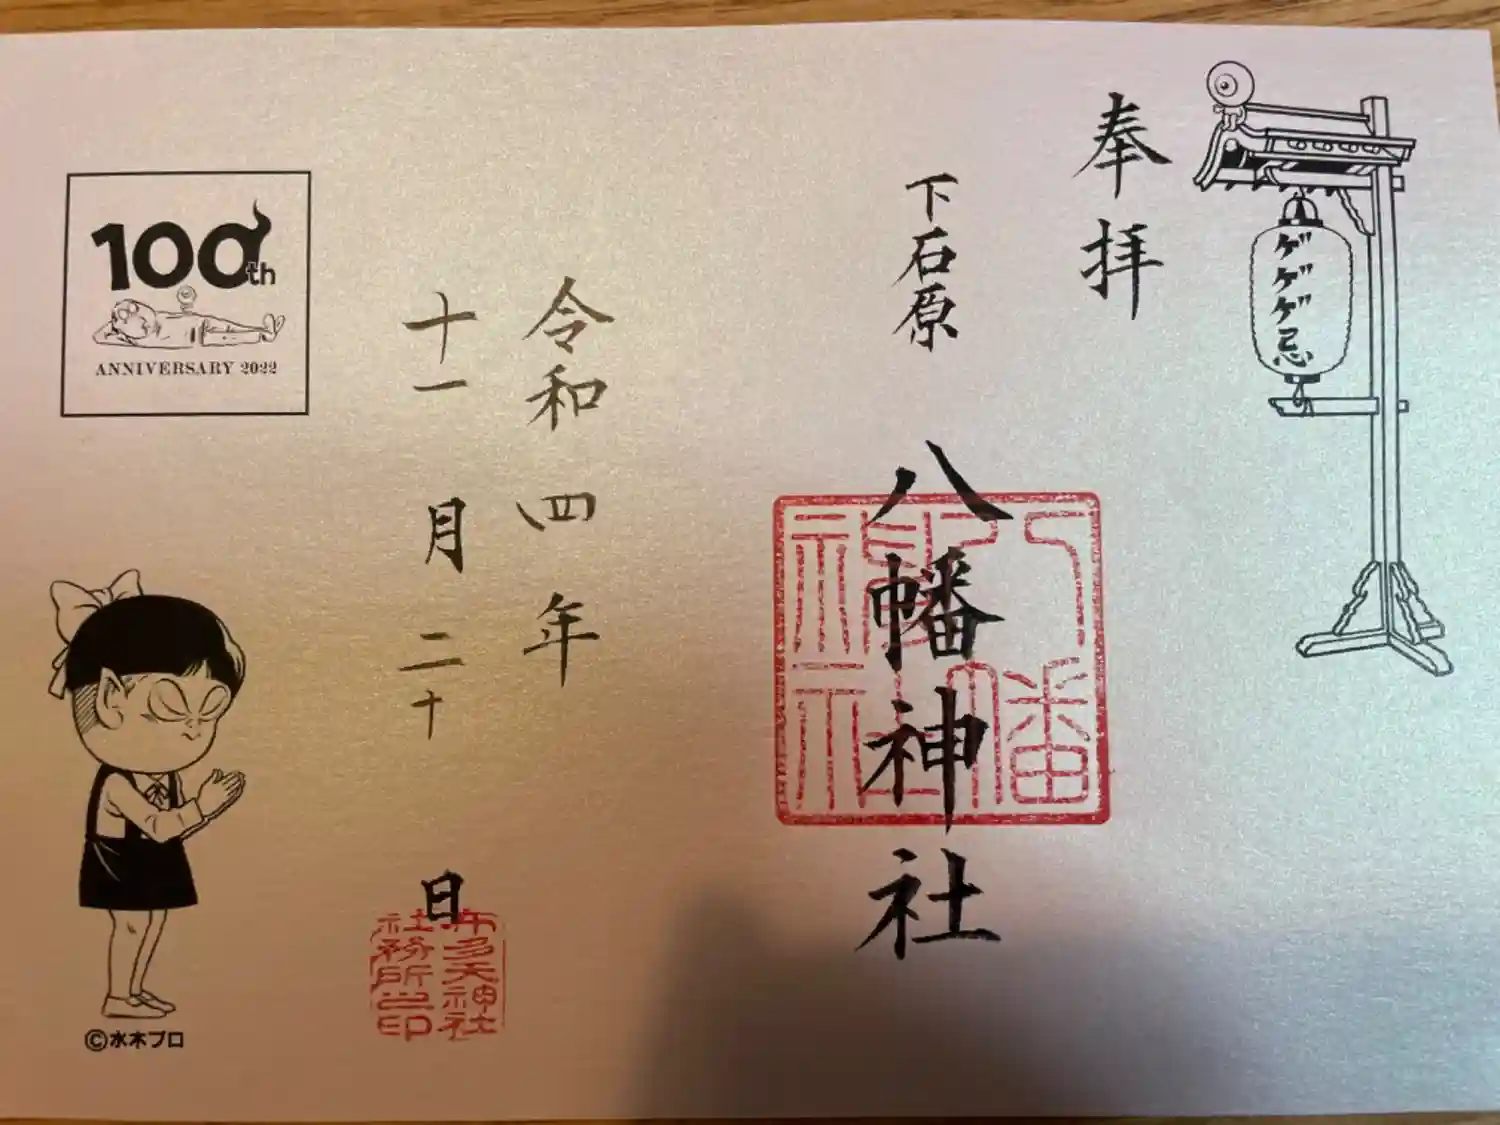 奉拝
ゲゲゲ忌
下石原
八幡神社
八幡神社
令和四年
十一月二十日
布多天神社
社務所之印
100th
ANNIVERSARY 2022
©水木プロ